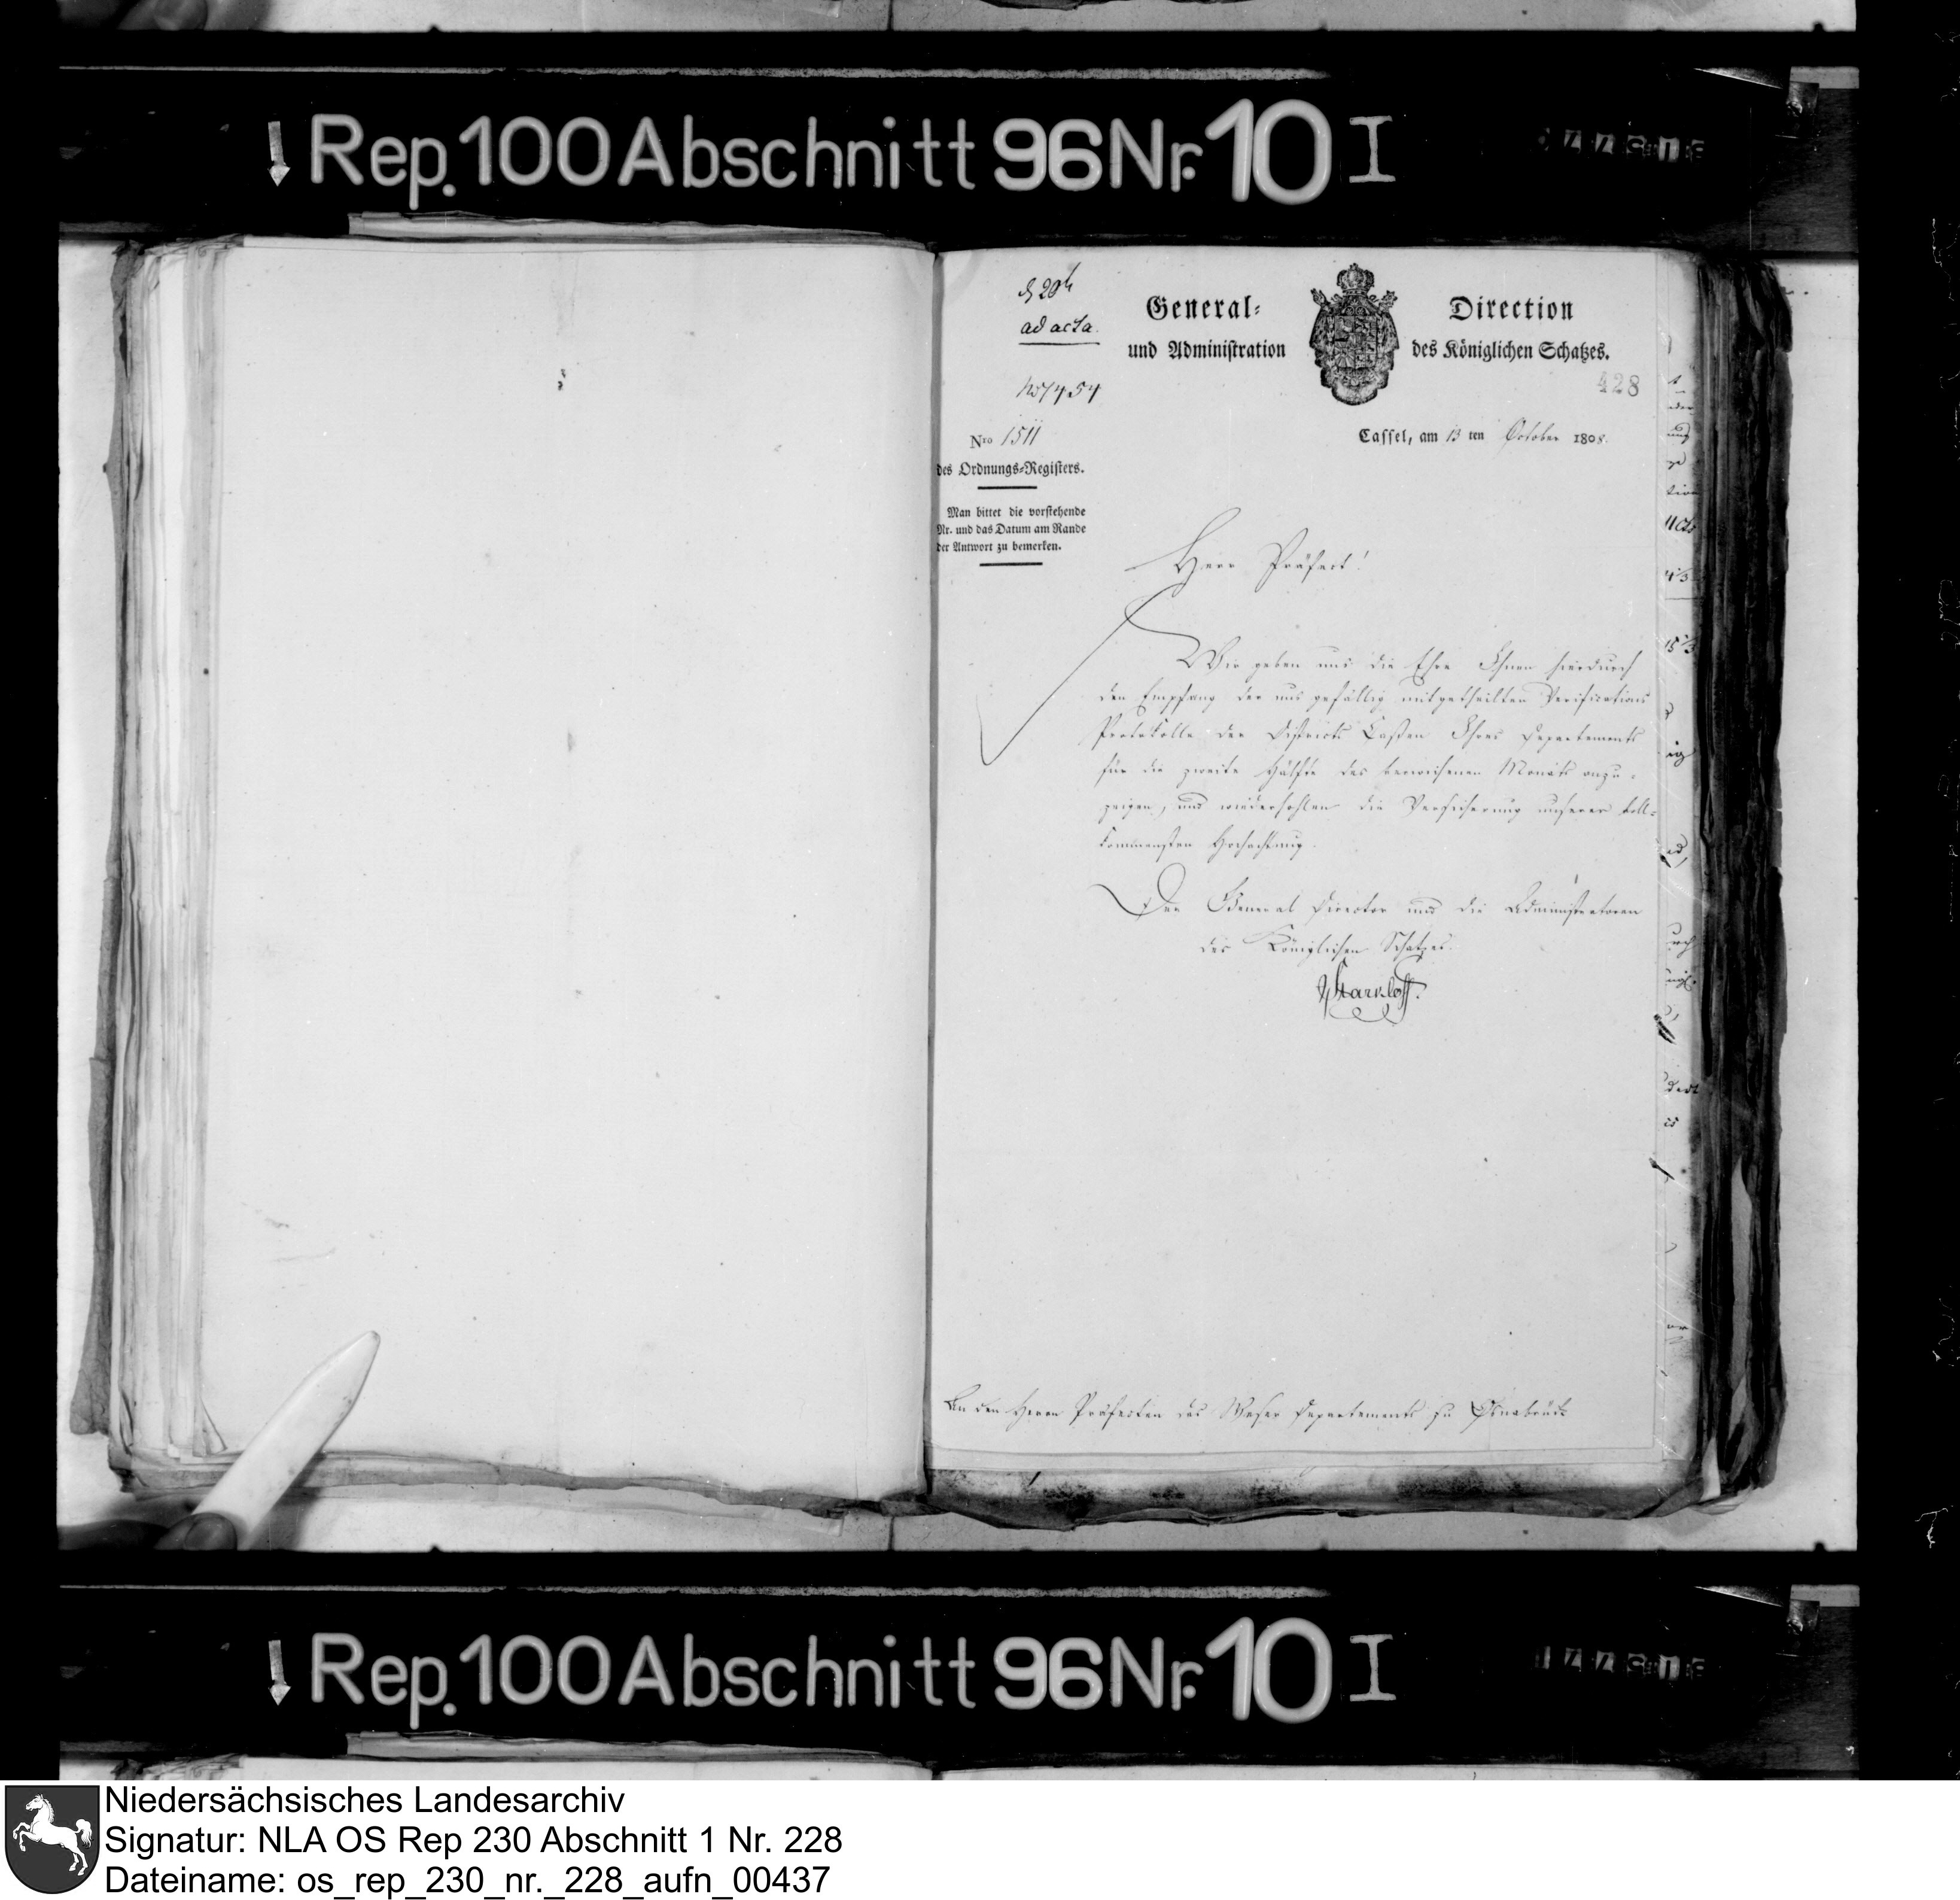 Rep. 100 Abschnitt 96 Nr. 10 I
ad acta.
No 7454
428
General- Direction
und Administration des Königlichen Schatzes.
Nro 1511
des Ordnungs-Registers.
Man bittet die vorstehende
Nr. und das Datum am Rande
der Antwort zu bemerken.
Cassel, am 13 ten October 1808.
Herr Präfect!
Wir geben uns die Ehre Ihnen hierdurch
den Empfang der uns gefällig mitgetheilten Verifications
Protokolle der Districts Cassen Ihres Departements
für die zweite Hälfte des verwichenen Monats anzu-
zeigen, und wiederhohlen die Versicherung unserer voll-
kommensten Hochachtung.
Der General Director und die Administratoren
des Königlichen Schatzes.
Starkloff.
An den Herrn Präfecten des Weser Departements zu Osnabrück
Rep. 100 Abschnitt 96 Nr. 10 I
Niedersächsisches Landesarchiv
Signatur: NLA OS Rep 230 Abschnitt 1 Nr. 228
Dateiname: os_rep_230_nr._228_aufn_00437